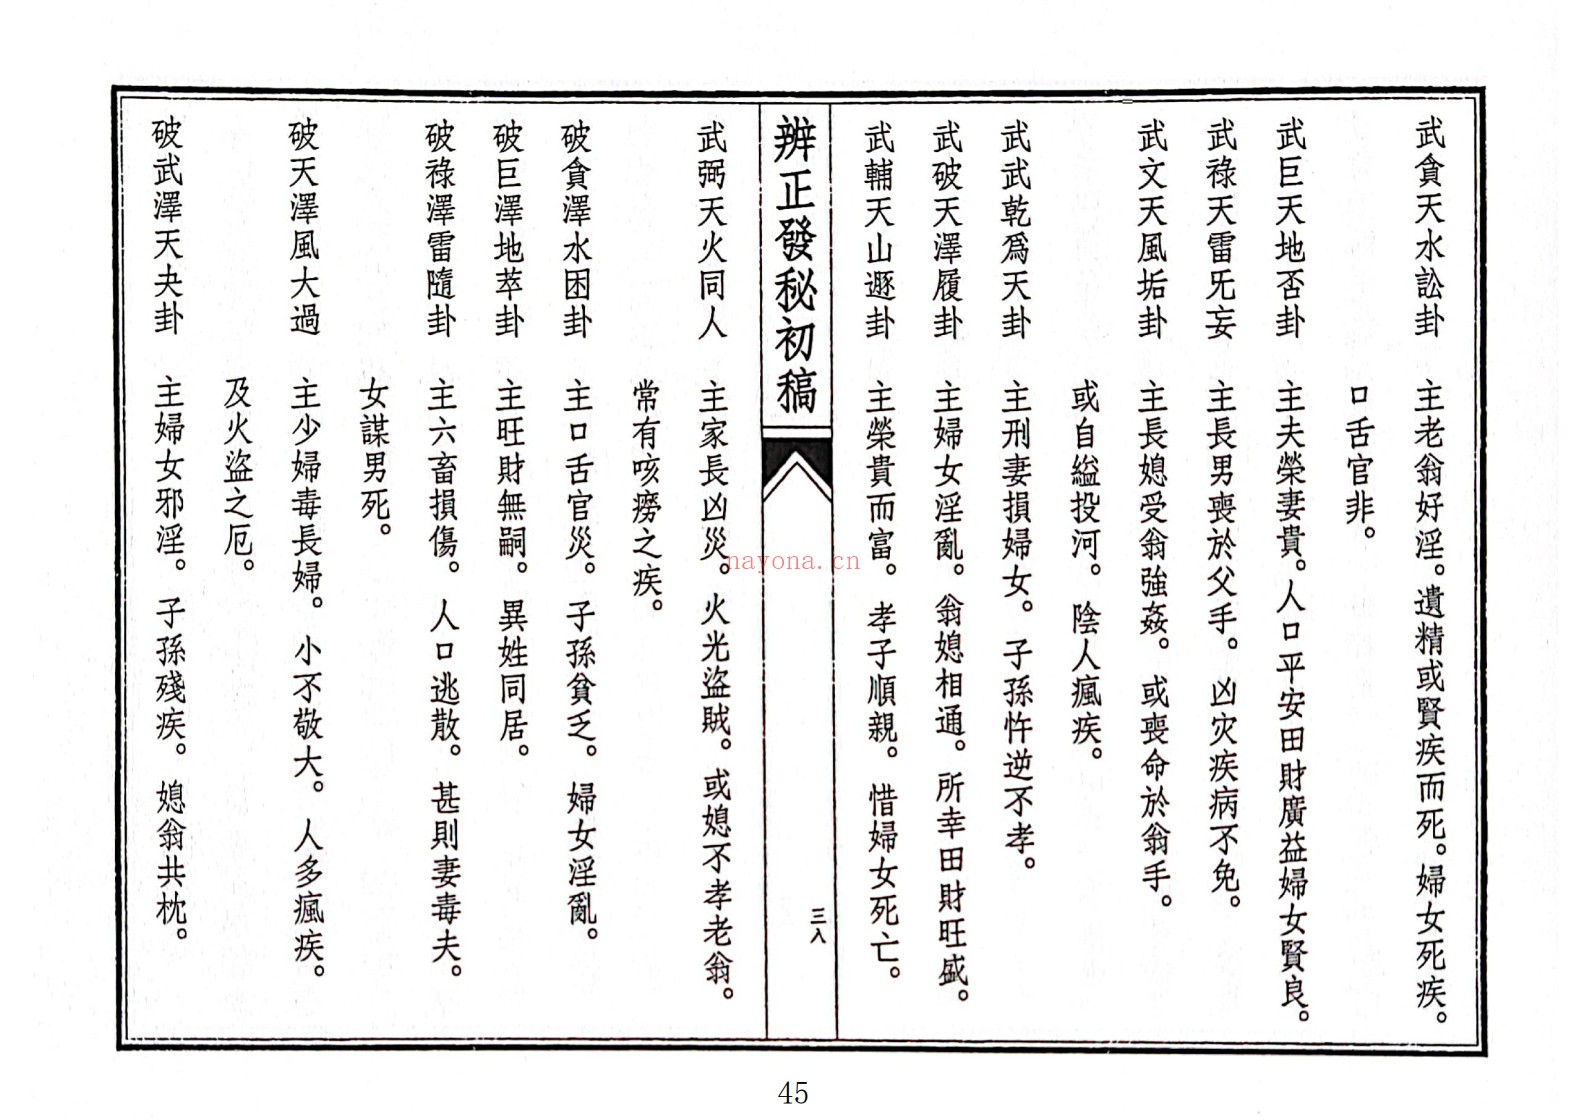 武貪天水訟卦　主老翁好淫。遺精或賢疾而死。婦女死疾。
口舌官非。
武巨天地否卦　主夫榮妻貴。人口平安田財廣益婦女賢良。
武祿天雷旡妄　主長男喪於父手。凶灾疾病不免。
武文天風垢卦　主長媳受翁強姦。或喪命於翁手。
或自縊投河。陰人瘋疾。
武武乾爲天卦　主刑妻損婦女。子孫忤逆不孝。
武破天澤履卦　主婦女淫亂。翁媳相通。所幸田財旺盛。
武輔天山遯卦　主榮貴而富。孝子順親。惜婦女死亡。
辨正發秘初稿
三八
武弼天火同人　主家長凶災。火光盜賊。或媳不孝老翁。
常有咳癆之疾。
破貪澤水困卦　主口舌官災。子孫貧乏。婦女淫亂。
破巨澤地萃卦　主旺財無嗣。異姓同居。
破祿澤雷隨卦　主六畜損傷。人口逃散。甚則妻毒夫。
女謀男死。
破天澤風大過　主少婦毒長婦。小不敬大。人多瘋疾。
及火盜之厄。
破武澤天夬卦　主婦女邪淫。子孫殘疾。媳翁共枕。
nayona.cn
45